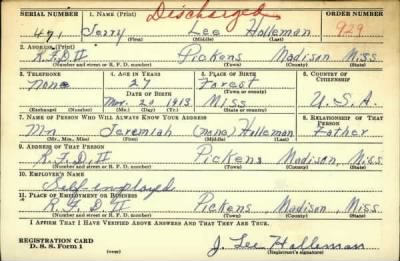 SERIAL NUMBER 1. NAME (Print) Discharged ORDER NUMBER
471 Jerry Lee Holleman 929
(First) (Middle) (Last)
2. ADDRESS (Print)
R.F.D. II Pickens Madison Miss
(Number and street or R. F. D. number) (Town) (County) (State)
3. TELEPHONE 4. AGE IN YEARS 5. PLACE OF BIRTH 6. COUNTRY OF CITIZENSHIP
None 27 Forest
DATE OF BIRTH (Town or county)
Mar. 20 1913 Miss U.S.A.
(Exchange) (Number) (Mo.) (Day) (Yr.) (State or country)
7. NAME OF PERSON WHO WILL ALWAYS KNOW YOUR ADDRESS 8. RELATIONSHIP OF THAT PERSON
Mr Jeremiah (none) Holleman Father
(Mr., Mrs., Miss) (First) (Middle) (Last)
9. ADDRESS OF THAT PERSON
R.F.D. II Pickens Madison, Miss
(Number and street or R. F. D. number) (Town) (County) (State)
10. EMPLOYER'S NAME
Self employed
11. PLACE OF EMPLOYMENT OR BUSINESS
R.F.D. II Pickens Madison Miss
(Number and street or R. F. D. number) (Town) (County) (State)
I AFFIRM THAT I HAVE VERIFIED ABOVE ANSWERS AND THAT THEY ARE TRUE.
REGISTRATION CARD
D. S. S. FORM 1 J. Lee Holleman
(Registrant's signature)